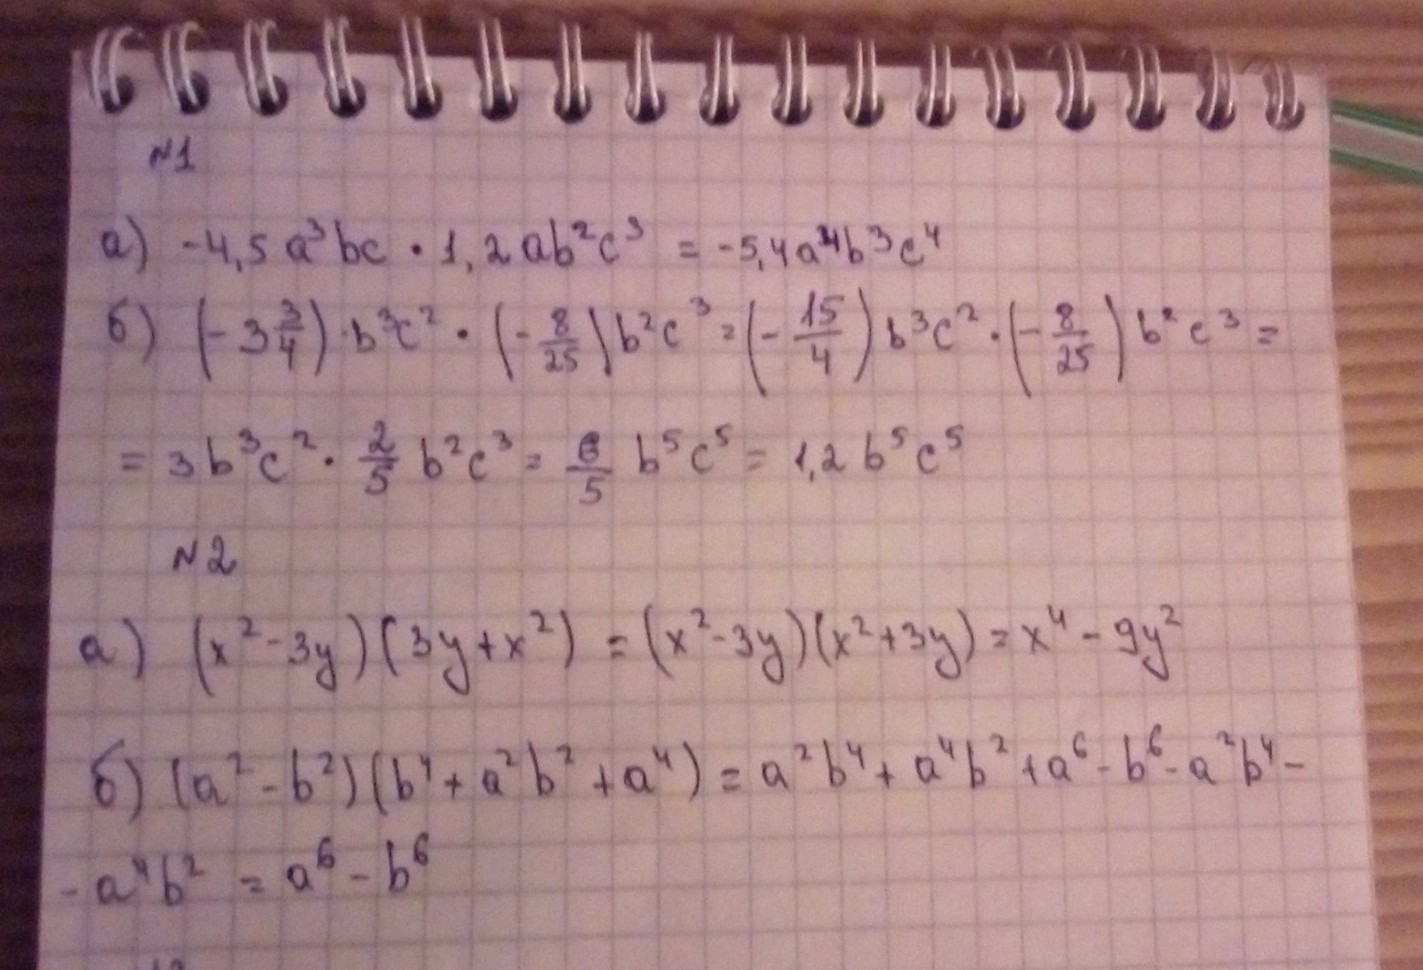 №1
а) -4,5a³bc · 1,2ab²c³ = -5,4a⁴b³c⁴
б) (-3 3/4) · b³c² · (-8/25) b²c³ = (-15/4) b³c² · (-8/25) b²c³ =
= 3b³c² · 2/5 b²c³ = 6/5 b⁵c⁵ = 1,2 b⁵c⁵
№2
а) (x²-3y)(3y+x²) = (x²-3y)(x²+3y) = x⁴ - 9y²
б) (a²-b²)(b⁴+a²b²+a⁴) = a²b⁴ + a⁴b² + a⁶ - b⁶ - a²b⁴ -
- a⁴b² = a⁶ - b⁶